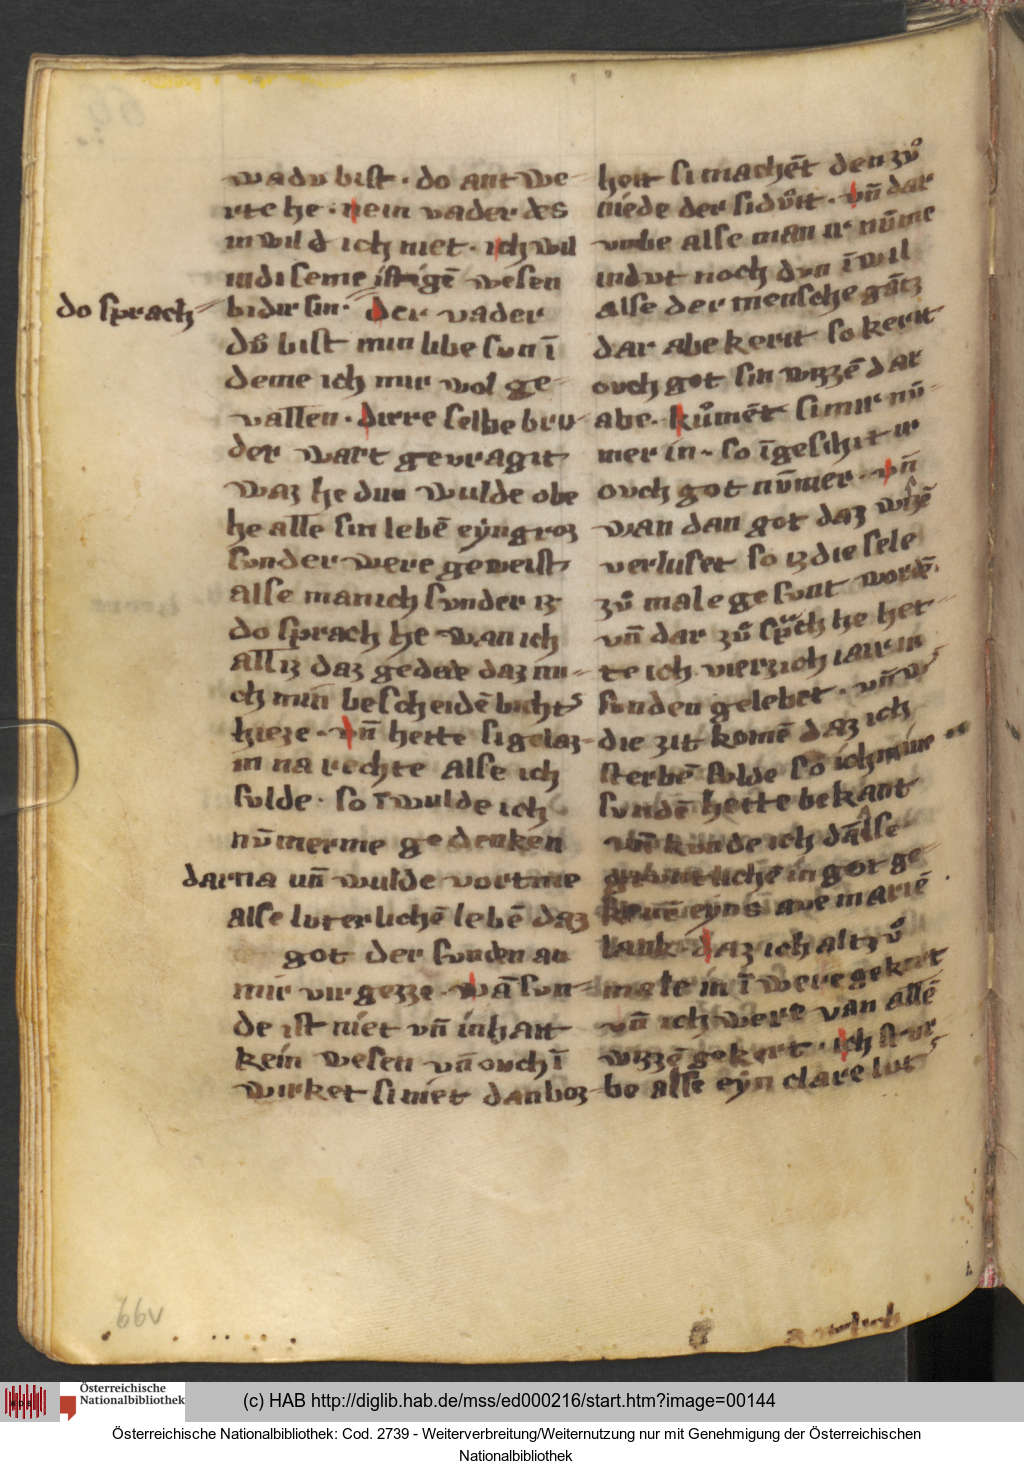 wadu bist · do ant we-
rte he · nein vader des
in wil d ich niet · ich wil
in diseme wesen
do sprach
bi dir sin · der vader
du bist min libe sun ī
deme ich mir wol ge-
vallen · dirre selbe bru-
der wart gevragit
waz he dun wulde obe
he alle sin lebē eyn groz
sunder were geweist
alse manich sunder iz
do sprach he wan ich
alliz daz gedede daz mi-
ch min bescheidē bichter
hieze · vn̄ hette si gelaz-
in na rechte alse ich
solde · so wulde ich
nūmerme gedenken
dar na un̄ wulde vort me
alse luterlichē lebē daz
got der sunden an
mir virgezze · wā sun-
de ist niet vn̄ inhat
kein wesen vn̄ ouch ī
wirket si niet dan boz
heit si machēt den zů
niede der si důit · vn̄ dar
umbe alse man ir nūme
indut noch dun ī wil
alse der mensche gātz
dar abe kerit so kerit
ouch got sin wizzē dar
abe · kůmēt si mir nū-
mer in · so īgeschit ir
ouch got nūmer · vn̄
wan dan got daz wizzē
verluset so iz die sele
zů male gesunt wordē ·
vn̄ dar zů sprach he het-
te ich vierzich iair in
sunden gelebet · vn̄ w
die zit komē daz ich
sterbē solde so ich mine
sundē hette bekant
vn̄ kunde ich dā alse
in got ge-
eyns ave mariē
lank · daz ich altzů
male in ī were gekert
vn̄ ich were van allē
wizzē gekert · ich stur-
be alse eyn clare lut
66v
(c) HAB http://diglib.hab.de/mss/ed000216/start.htm?image=00144
Österreichische Nationalbibliothek
Österreichische Nationalbibliothek: Cod. 2739 - Weiterverbreitung/Weiternutzung nur mit Genehmigung der Österreichischen
Nationalbibliothek